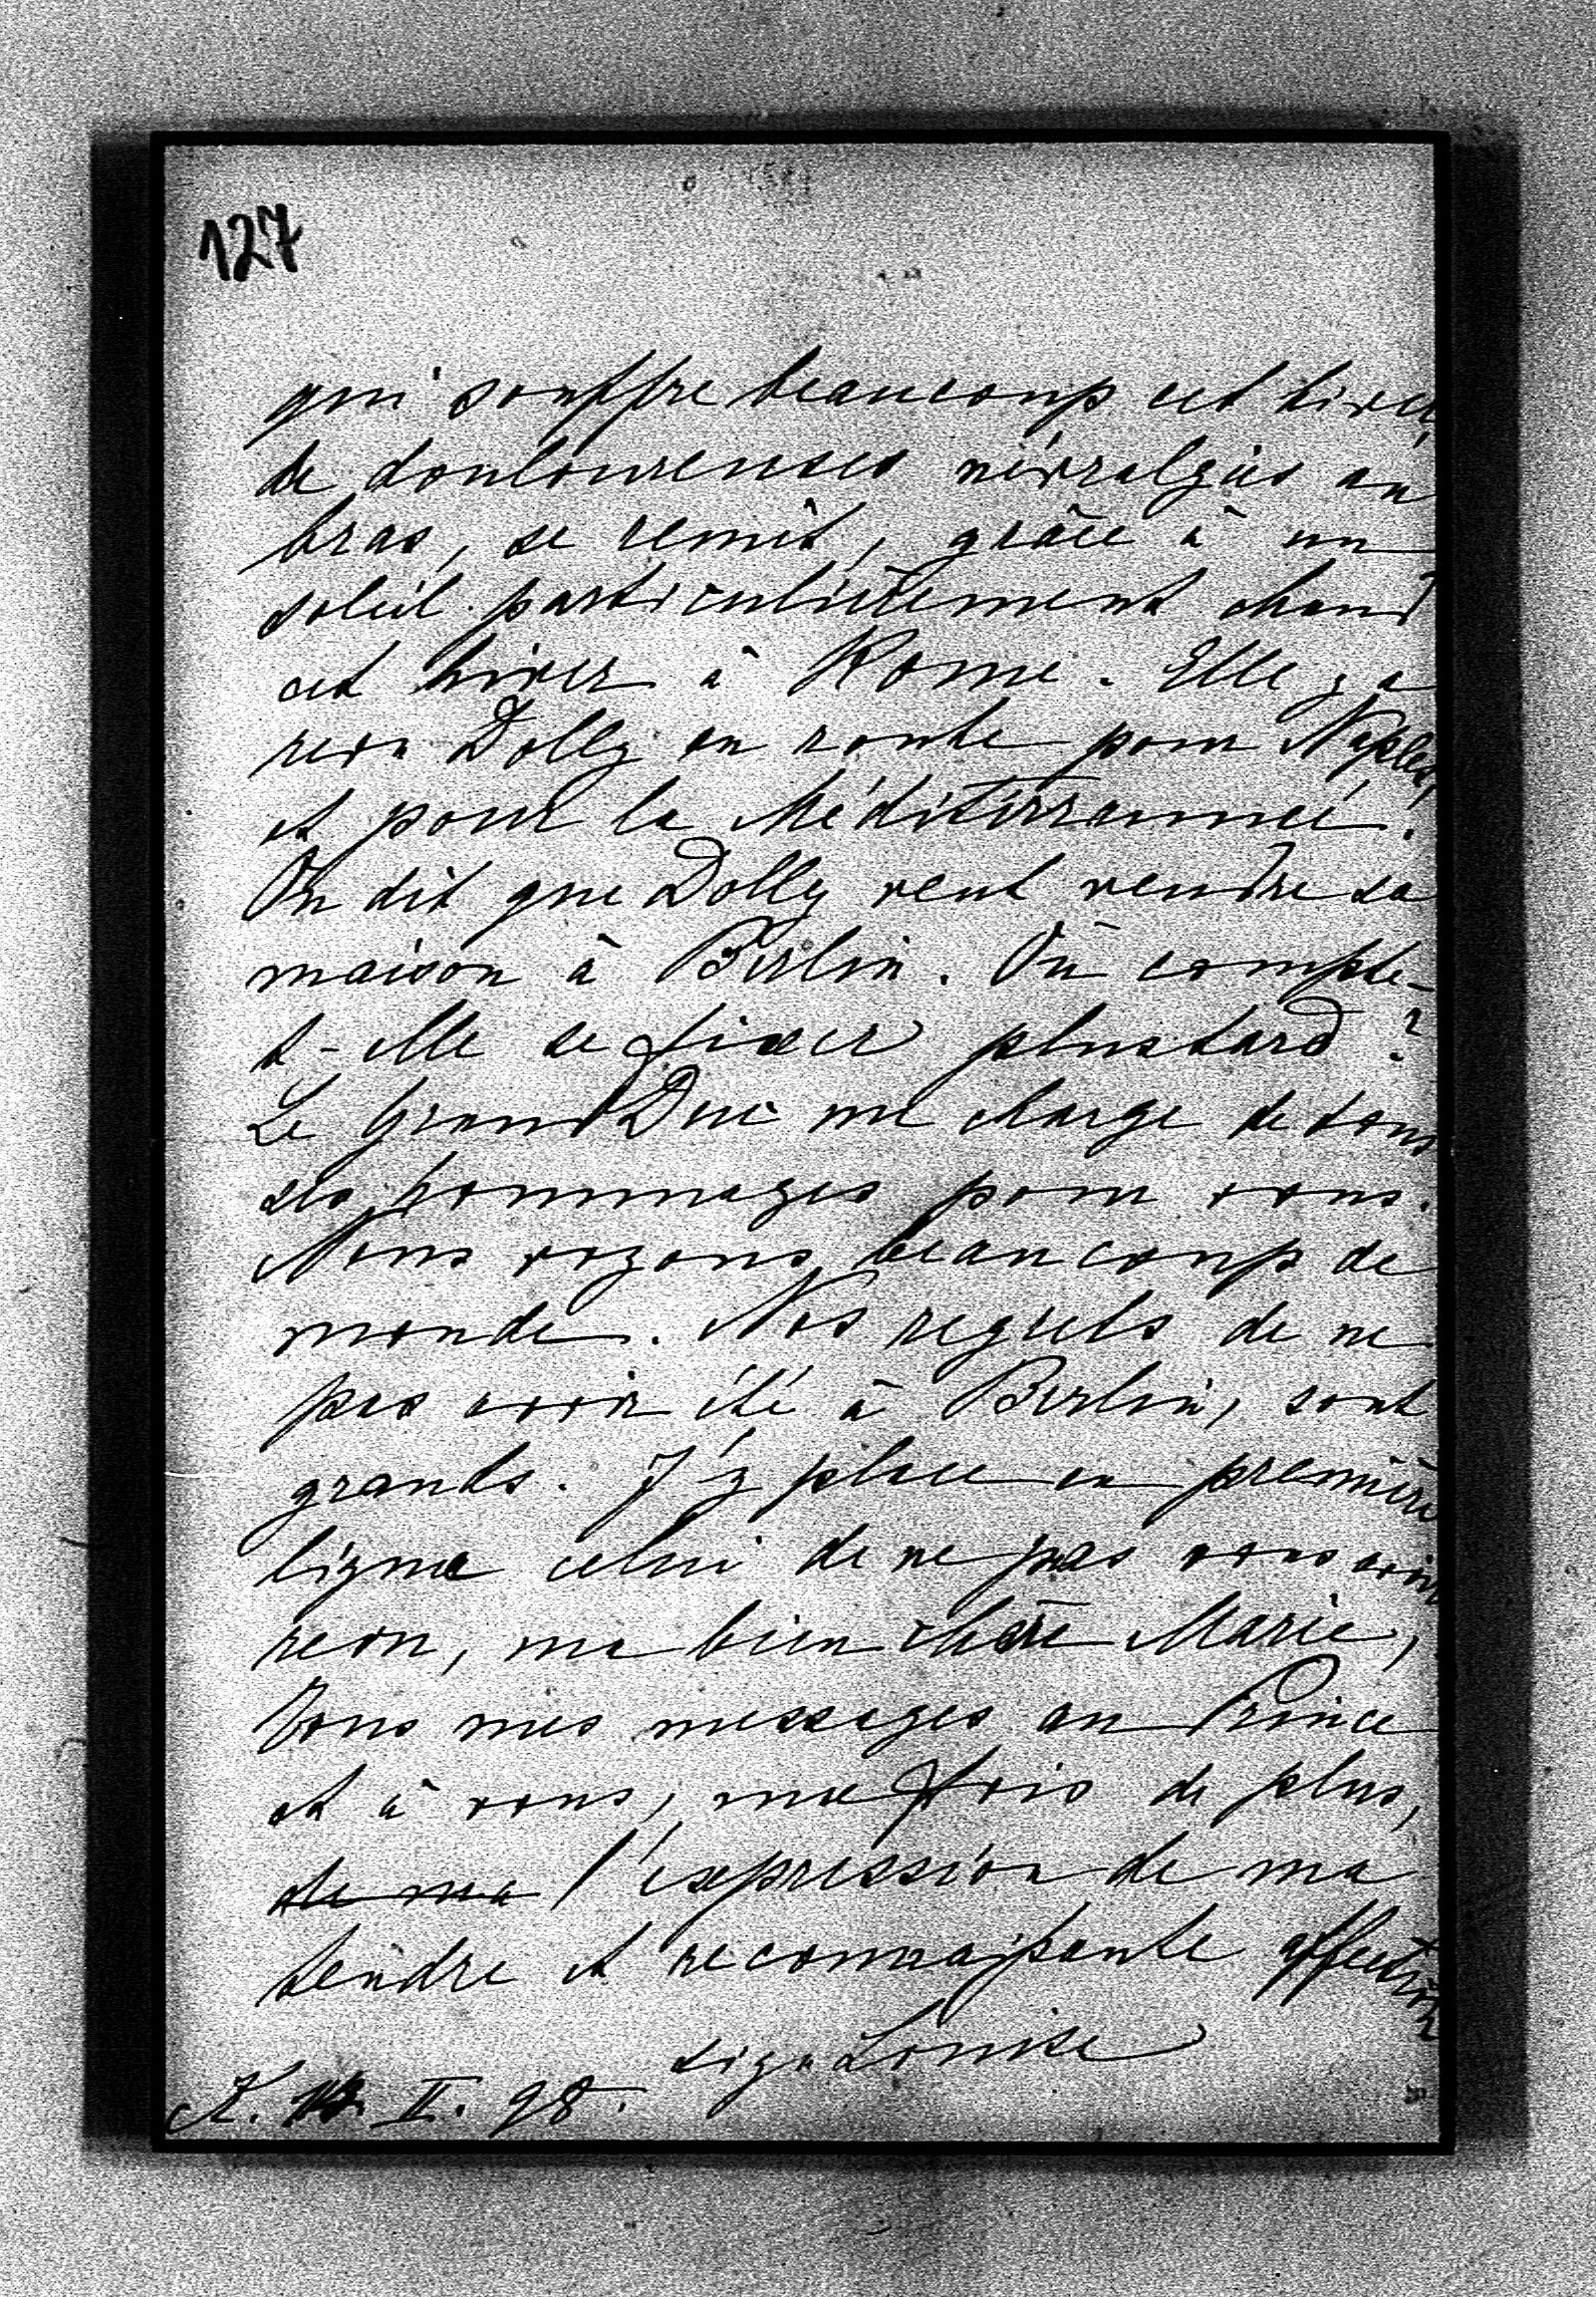 127
qui souffre beaucoup cet hiver
de douloureuses névralgies au
bras, se remèt, grâce à un
soleil particulièrement chaud
cet hiver à Rome. Elle y a
revu Dolly en route pour Naples,
et pour la Méditérrannée.
On dit que Dolly veut vendre sa
maison à Berlin. Où compte-
t-elle se fixer plus tard ?
Le Grand Duc me charge de tous
ses hommages pour vous.
Nous voyons beaucoup de
monde. Nos regrets de ne
pas avoir été à Berlin, sont
grands. J'y place en première
ligne celui de ne pas vous avoir
revu, ma bien chère Marie,
Tous mes messages au Prince
et à vous, une fois de plus,
de ma l'expression de ma
tendre et reconnaissante affection
sign Louise
K. II. 98.